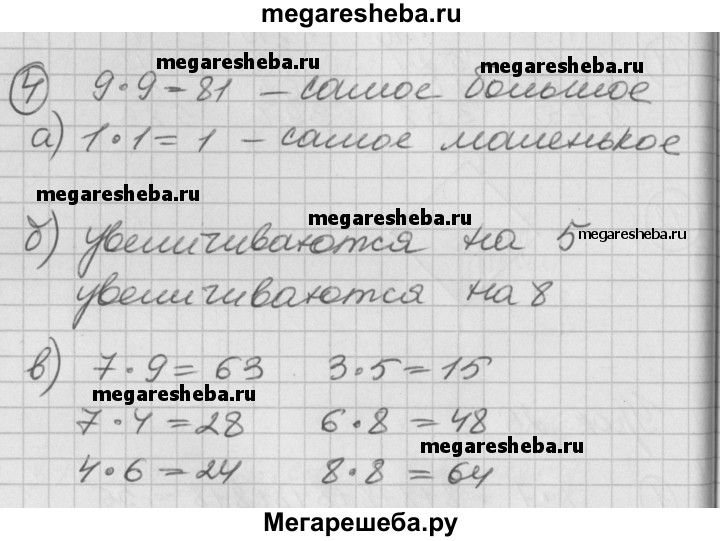 megaresheba.ru
megaresheba.ru megaresheba.ru
4 9·9=81 – самое большое
а) 1·1=1 – самое маленькое
megaresheba.ru megaresheba.ru megaresheba.ru
б) увеличиваются на 5
увеличиваются на 8
в) 7·9=63 3·5=15
megaresheba.ru
7·4=28 6·8=48
megaresheba.ru
4·6=24 8·8=64
Мегарешеба.ру